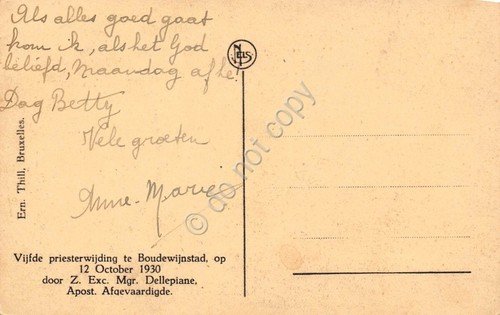 Als alles goed gaat
kom ik, als het God
beliefd, Maandag af
Dag Betty
Vele groeten
Anne-Marie
NELS
Ern. Thill, Bruxelles.
Vijfde priesterwijding te Boudewijnstad, op
12 October 1930
door Z. Exc. Mgr. Dellepiane,
Apost. Afgevaardigde.
© do not copy